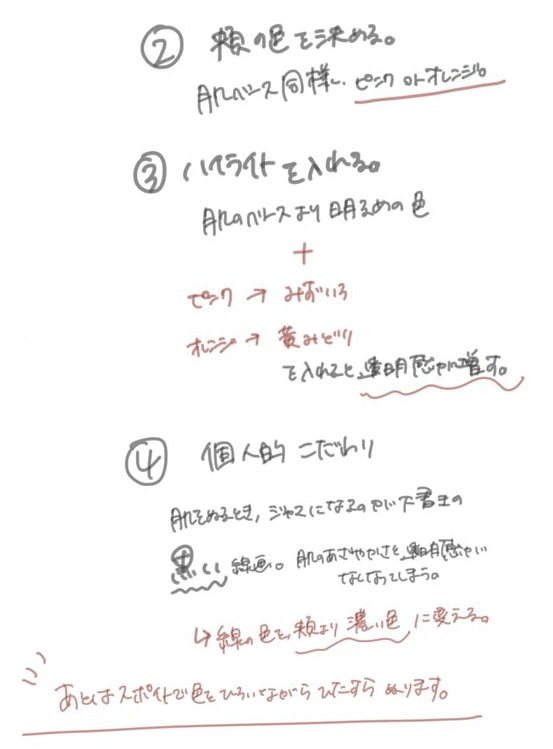 ② 頬の色を決める。
肌ベース同様、ピンク or オレンジ。
③ ハイライトを入れる。
肌のベースより明るめの色
+
ピンク → みずいろ
オレンジ → 黄みどり
を入れると、透明感が増す。
④ 個人的こだわり
肌をぬるとき、ジャマになるのが下書きの
黒い線画。肌のあざやかさと、透明感が
なくなってしまう。
↳ 線の色を、頬より濃い色に変える。
あとはスポイトで色をひろいながらひたすらぬります。